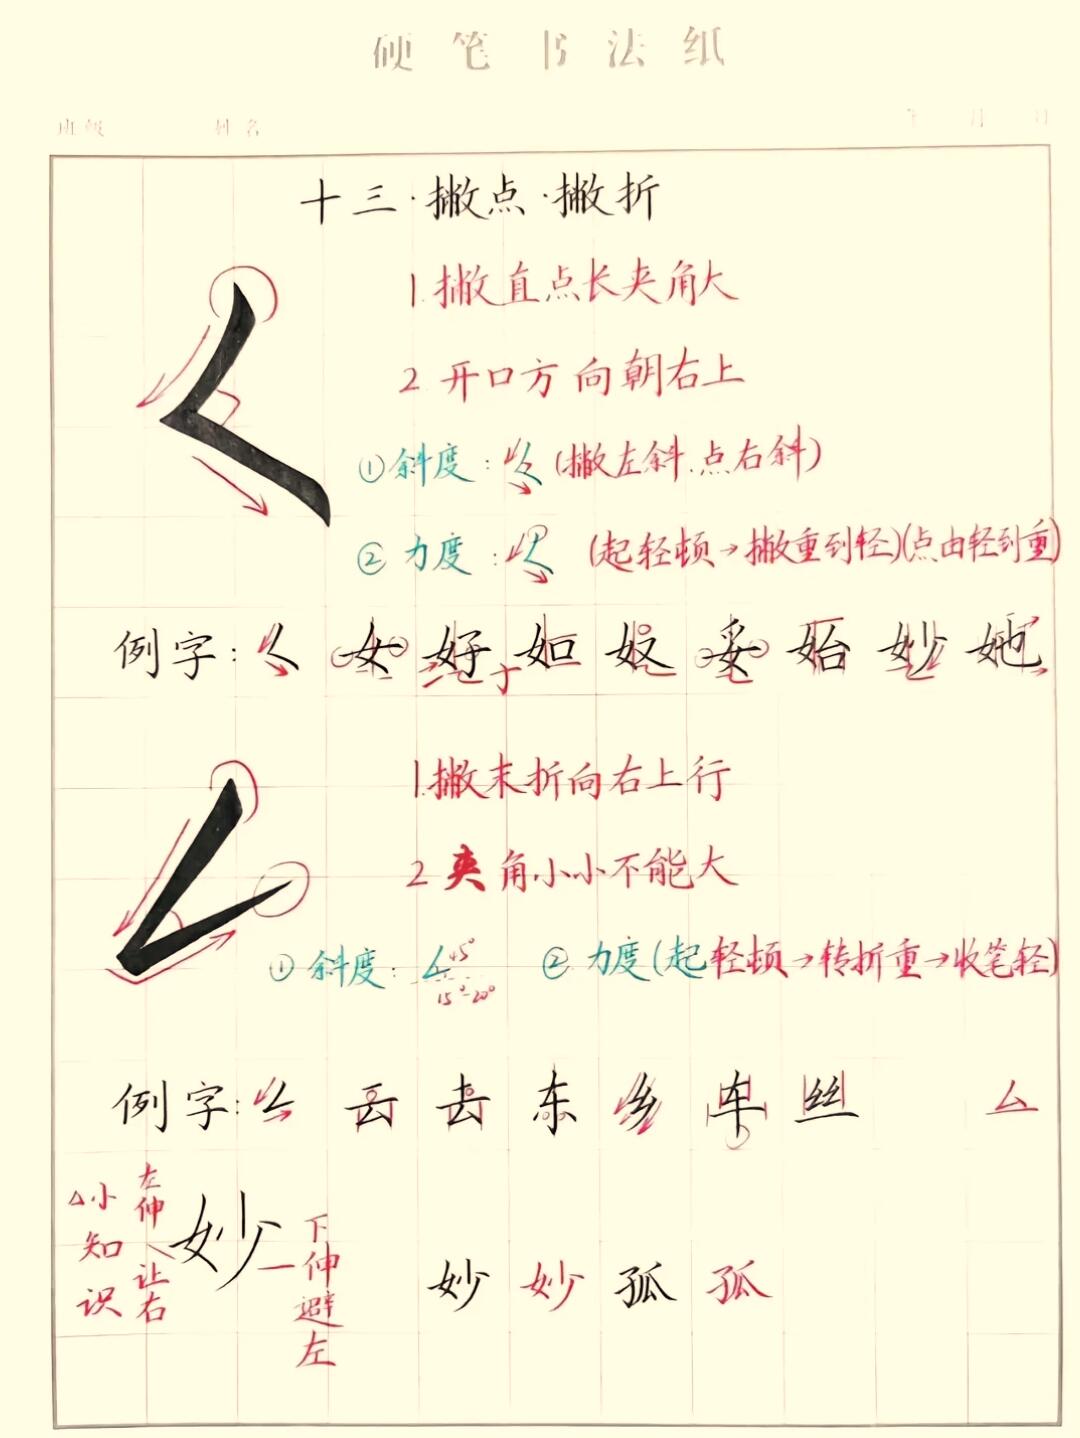 硬笔书法纸
班级 姓名 年 月 日
十三·撇点·撇折
1.撇直点长夹角大
2 开口方向朝右上
①斜度:𡿨(撇左斜.点右斜)
②力度:𡿨(起轻顿→撇重到轻)(点由轻到重)
例字:𡿨 女 好 如 奴 妥 始 妙 她
于
1.撇末折向右上行
2 夹角小小不能大
①斜度:∠45°
15°-20°
②力度(起轻顿→转折重→收笔轻)
例字:厶 云 去 东 乡 车 丝 厶
△小知识
左伸让右
妙
下伸避左
妙 妙 孤 孤